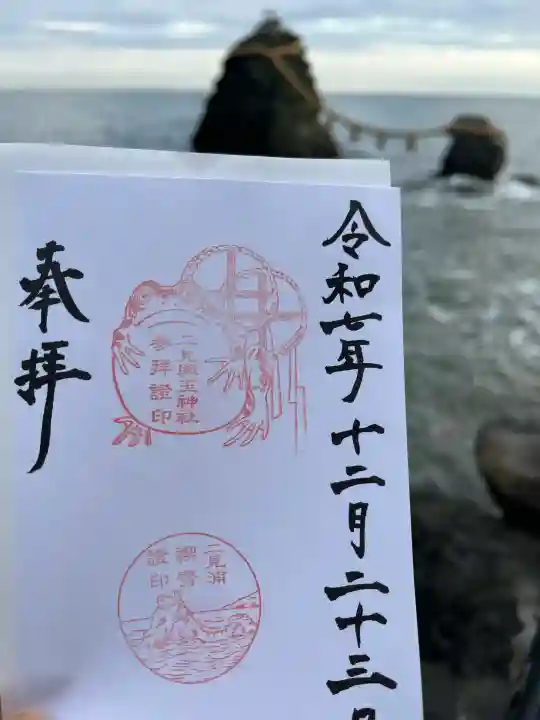 令和七年十二月二十三日
二見興玉神社
参拝證印
二見浦
禊霊
證印
奉拝